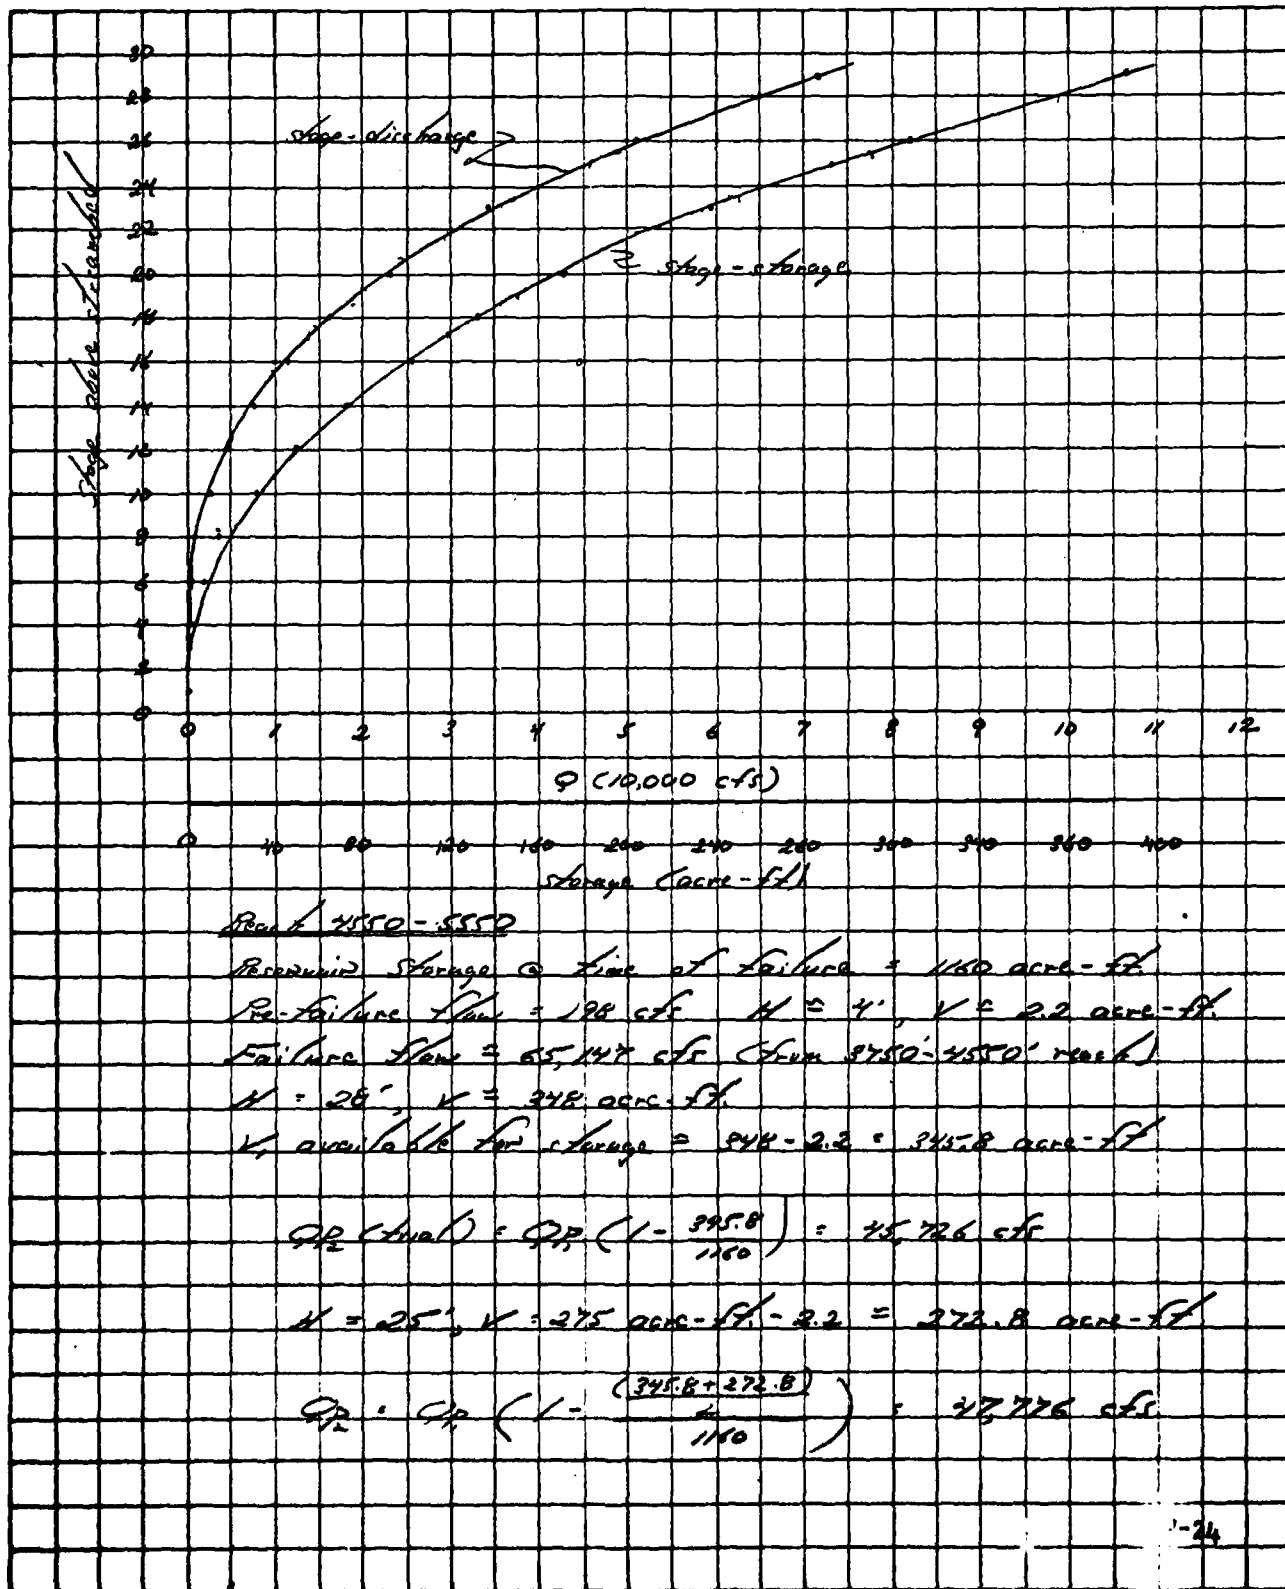 30
28
26
24
22
20
18
16
14
12
10
8
6
4
2
0
Stage above streambed
stage-discharge
stage-storage
0 1 2 3 4 5 6 7 8 9 10 11 12
Q (10,000 cfs)
0 40 80 120 160 200 240 280 320 340 360 400
storage (acre-ft)
Reach 4550-5550
Reservoir Storage @ time of failure = 1160 acre-ft.
Pre-failure flow = 198 cfs H = 4', V = 2.2 acre-ft.
Failure flow = 65,147 cfs (from 3750'-4550' reach)
H = 28', V = 348 acre-ft.
V, available for storage = 348-2.2 = 345.8 acre-ft
QP2 (trial) = QP1 (1 - 345.8/1160) = 45,726 cfs
H = 25', V = 275 acre-ft. - 2.2 = 272.8 acre-ft
QP2 = QP1 (1 - (345.8+272.8)/2/1160) = 47,776 cfs
-24